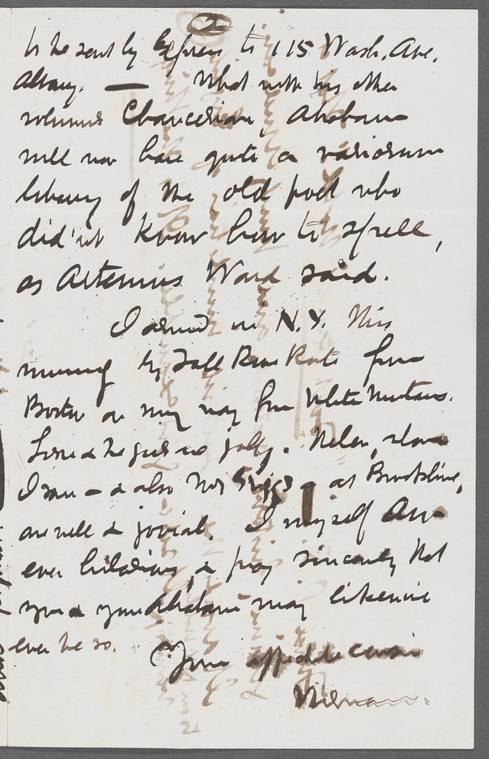 2
to be sent by Express to 115 Wash. Ave.
Albany. — What with his other
volumes Chaucerian, Abraham
will now have quite a variorum
library of the old poet who
did'nt know how to spell,
as Artemus Ward said.
I arrived in N.Y. this
morning by Fall River Route from
Boston on my way from White Mountains.
Lizzie & the girls are jolly. Helen, whom
I saw — & also Mrs Griggs — at Brookline,
are well & jovial. I myself am
ever hilarious, & pray sincerely that
you & your Abraham may likewise
ever be so.
Your affectionate cousin